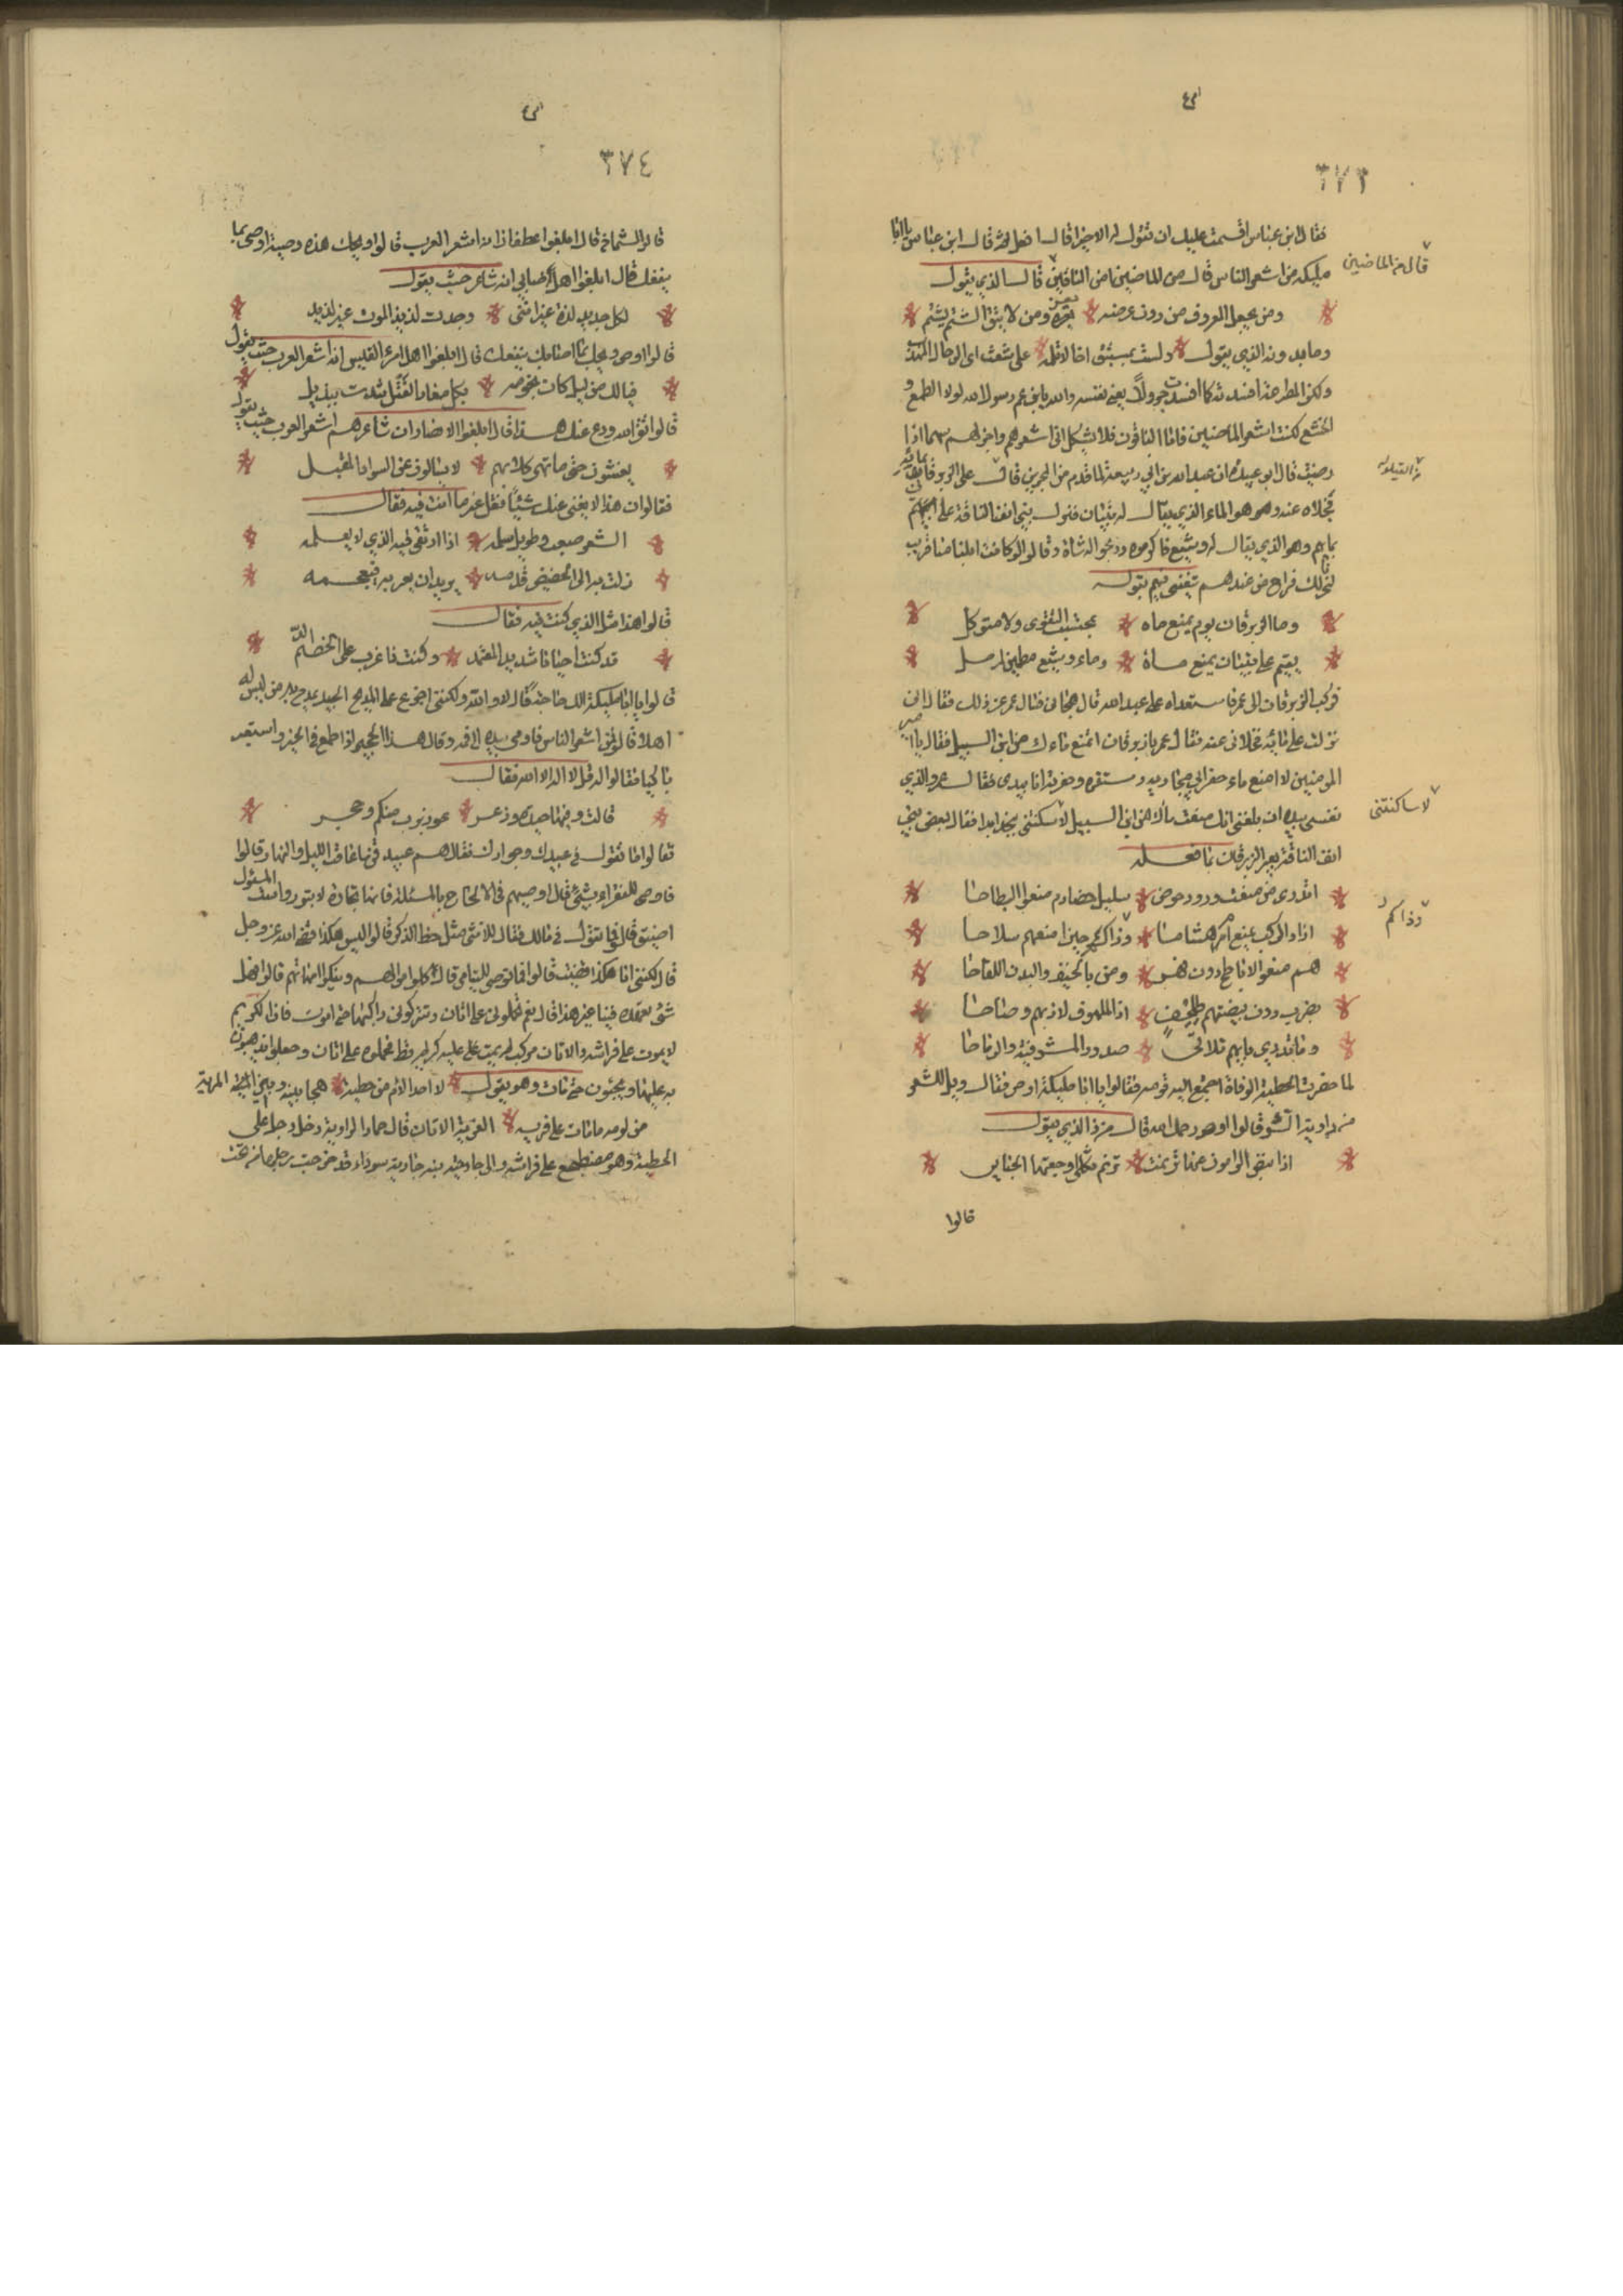 ٣٧٣
فقال ابن عباس اقسمت عليك ان تقول له الاخيرا قال افعل ثم قال ابن عباس يا ابا
مليكة من اشعر الناس قال من الماضين ام من الباقين قال الذي يقول
قال من الماضين
ومن يجعل المعروف من دون عرضه يفره ومن لا يتق الشتم يشتم
وما بدونه الذي يقول ولست بمستبق اخا لا تلمه على شعث اي الرجال المهذب
ولكن الضراعة افسدته كما افسدت جرولا يعني نفسه والله يا ابن عم رسول الله لولا الطمع و
الجشع لكنت اشعر الماضين فاما الباقون فلا تشكل اني اشعرهم واجزلهم سهما اذا
رميت قال ابو عبيدة ان عبد الله بن ابي ربيعة لما قدم من البحرين على الزبرقان بمائه
فحلاه عنه وهو الماء الذي يقال له بنيان فنزل ببني انف الناقة على
مائهم وهو الذي يقال له وشيع فاكرموه وذبحوا له شاة وقالوا لو كانت ابلنا منا قريب
لنحرنا لك فراح من عندهم يتغنى فيهم بقوله
وما الزبرقان يوم يمنع ماه بمحتسب التقوى ولا متوكل
يقيم على بنيان يمنع ماءه وماء وشيع ماء عطشان مرمل
فركب الزبرقان الى عمر فاستعداه على عبد الله قال هجاني فسال عمر عن ذلك فقال اني
نزلت على مائه فحلاني عنه فقال عمر يا زبرقان اتمنع ماءك من ابن السبيل فقال يا امير
المومنين لا امنع ماء حفر ابي مجاريه ومستقره وحفرته انا بيدي فقال عمر والذي
نفسي بيده لئن بلغني انك منعت ماك من ابن السبيل لا سكنتني بنجد ابدا فقال بعض بني
لا ساكنتني
انف الناقة يعير الزبرقان ما فعله
اتدري من منعت ورود حوض سليل خضارم منعوا البطاحا
اذاد الركب تمنع ام هشاما وذا الرمحين امنعهم سلاحا
هم منعوا الاباطح دون فهر ومن بالخيف والبدن اللقاحا
بضرب دون بيضتهم طلخف اذا الملهوف لاذ بهم وصاحا
وما تدري بايهم تلاقي صدور المشرفية والرماحا
لما حضرت الحطيئة الوفاة اجتمع اليه قومه فقالوا يا ابا مليكة اوص فقال ويل للشعر
من راوية السوء قالوا اوص رحمك الله قال من ذا الذي يقول
اذا انبض الرامون عنها ترنمت ترنم ثكلى اوجعتها الجنايز
قالوا
٣٧٤
قالوا الشماخ قال ابلغوا غطفان انه اشعر العرب قالوا ويحك هذه وصية اوص بما
ينفعك قال ابلغوا اهل ضابي انه شاعر حيث يقول
لكل جديد لذة غير انني وجدت لذيذ الموت غير لذيذ
قالوا اوص ويحك بما ينفعك قال ابلغوا اهل امرء القيس انه اشعر العرب حيث يقول
فيالك من ليل كان نجومه بكل مغار الفتل شدت بيذبل
قالوا اتق الله ودع عنك هذا قال ابلغوا الانصار ان شاعرهم اشعر العرب حيث يقول
يغشون حتى ما تهر كلابهم لا يسالون عن السواد المقبل
فقالوا ان هذا لا يغني عنك شيئا فقل غير ما انت فيه فقال
الشعر صعب وطويل سلمه اذا ارتقى فيه الذي لا يعلمه
زلت به الى الحضيض قدمه يريد ان يعربه فيعجمه
قالوا هذا مثل الذي كنت فيه فقال
قد كنت احيانا شديد المعتمد وكنت ذا غرب على الخصم الالد
قالوا يا ابا مليكة الك حاجة قال لا والله ولكنني اجزع على المديح الجيد يمدح به من ليس له
اهلا قالوا فمن اشعر الناس فاومى بيده الى فمه وقال هذا الحجير اذا طمع في الخير واستعبر
باكيا فقالوا له قل لا اله الا الله فقال
قالت وفيها حيدة وذعر عوذ بربي منكم وحجر
فقالوا ما تقول في عبيدك وجواريك فقال هم عبيد قن ما تعاقب الليل والنهار قالوا
فاوص للفقراء بشئ قال اوصيهم في الالحاح بالمسئلة فانها تجارة لا تبور واست المسئول
اضيق قالوا فما تقول في مالك فقال للانثى مثل حظ الذكر قالوا ليس هكذا قضى الله عز وجل
قال لكنني انا هكذا قضيت قالوا فما توصي لليتامى قال كلوا اموالهم ونيكوا امهاتهم قالوا فهل
شئ تعهده فينا غير هذا قال نعم تحملوني على اتان وتتركوني راكبها حتى اموت فان الكريم
لا يموت على فراشه والاتان مركب لم يمت عليه كريم قط فحملوه على اتان وجعلوا يذهبون
به عليها ويجيئون حتى مات وهو يقول لا احد الام من حطيئه هجا بنيه وهجا المريه
من لومه مات على فريه الفريه الاتان قال حماد الراوية دخل رجل على
الحطيئة وهو مضطجع على فراشه والى جانبه جارية سوداء قد اخرجت رجلها من تحت